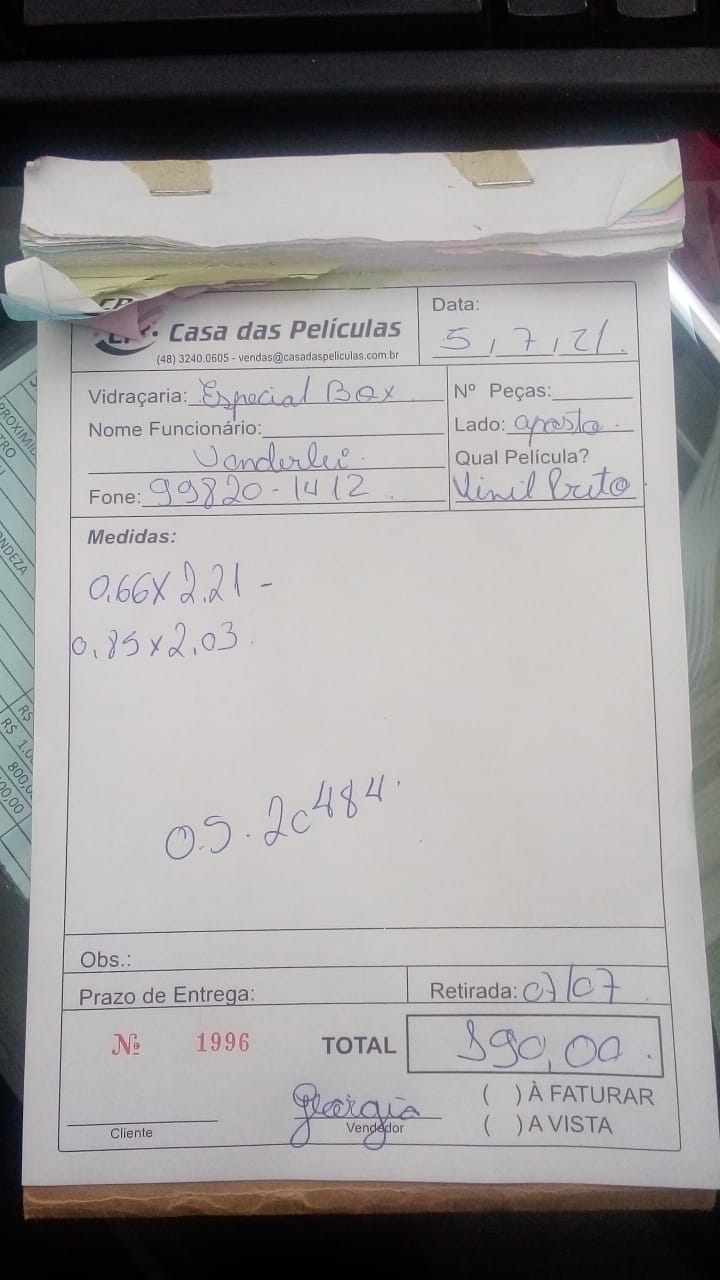 Casa das Películas
(48) 3240.0605 - vendas@casadaspeliculas.com.br
Data:
5, 7, 21.
Vidraçaria: Especial Box
Nome Funcionário:
Vanderlei.
Fone: 99820-1412.
Nº Peças:
Lado: oposto.
Qual Película?
Vinil Preto
Medidas:
0,66 x 2.21 -
0,85 x 2,03.
O.S. 20484.
Obs.:
Prazo de Entrega:
Retirada: 07/07.
Nº 1996
TOTAL
190,00.
Georgia
Cliente
Vendedor
( ) À FATURAR
( ) A VISTA
R$
R$ 1.0
800,0
00,00